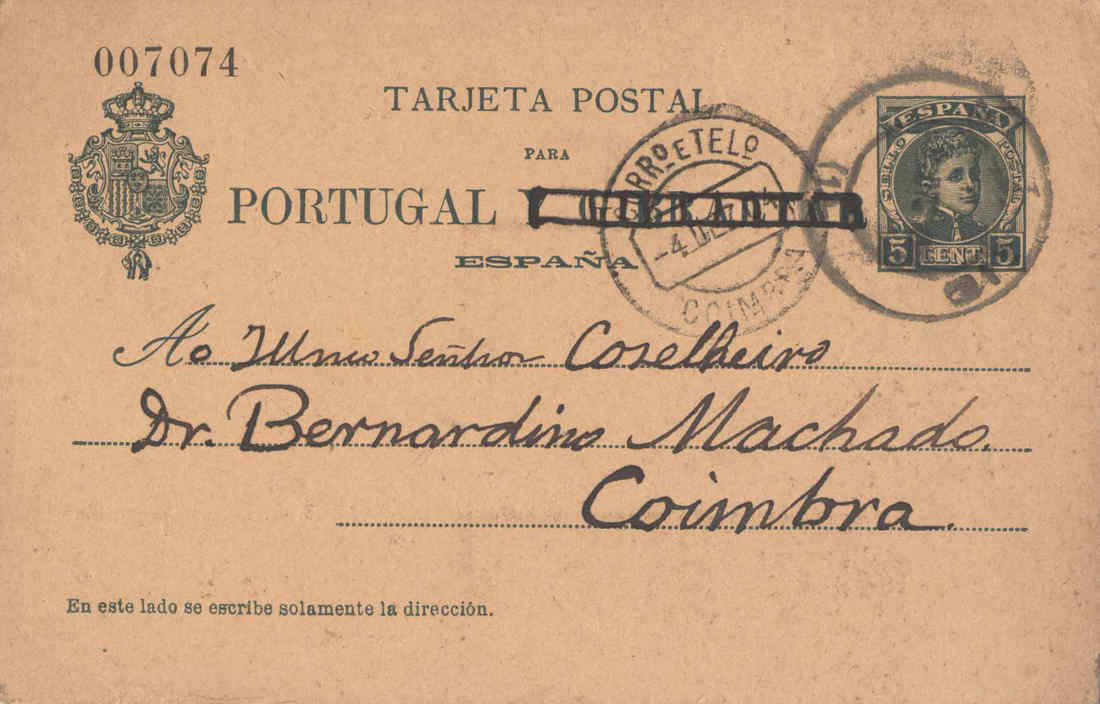 007074
TARJETA POSTAL
PARA
PORTUGAL Y GIBRALTAR
ESPAÑA
ESPAÑA
SELLO POSTAL
5 CENT. 5
CORRO E TELO
-4
COIMBRA
Ao Illmo Señhor Coselheiro
Dr. Bernardino Machado.
Coimbra.
En este lado se escribe solamente la dirección.